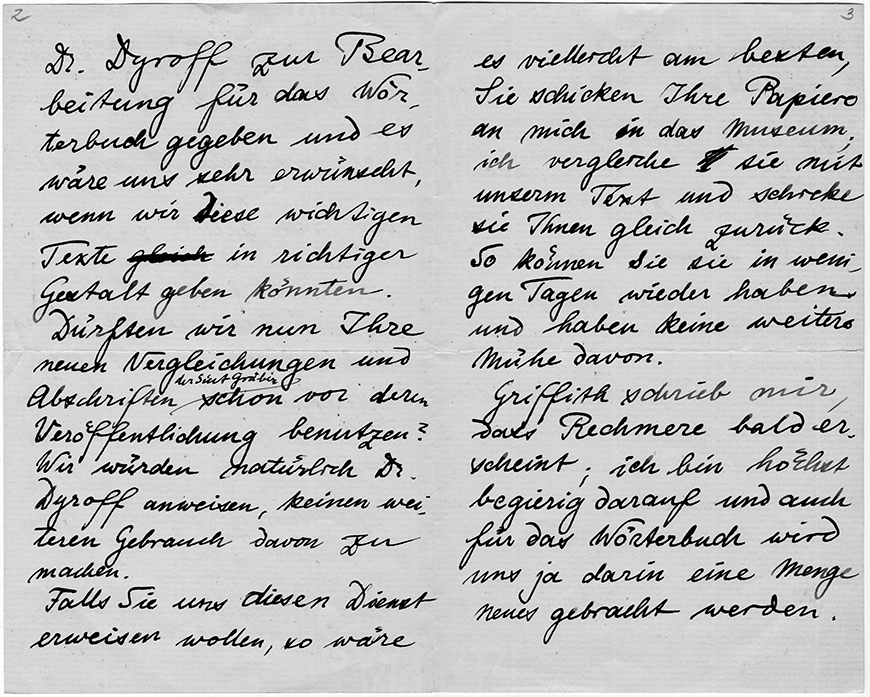 2
Dr. Dyroff zur Bear-
beitung für das Wör-
terbuch gegeben und es
wäre uns sehr erwünscht,
wenn wir diese wichtigen
Texte gleich in richtiger
Gestalt geben könnten.
Dürften wir nun Ihre
neuen Vergleichungen und
der Siut Gräber
Abschriften schon vor deren
Veröffentlichung benutzen?
Wir würden natürlich Dr.
Dyroff anweisen, keinen wei-
teren Gebrauch davon zu
machen.
Falls Sie uns diesen Dienst
erweisen wollen, so wäre
3
es vielleicht am besten,
Sie schicken Ihre Papiere
an mich in das Museum;
ich vergleiche sie mit
unserm Text und schicke
sie Ihnen gleich zurück.
So können Sie sie in weni-
gen Tagen wieder haben
und haben keine weitere
Mühe davon.
Griffith schrieb mir,
dass Rechmere bald er-
scheint; ich bin höchst
begierig darauf und auch
für das Wörterbuch wird
uns ja darin eine Menge
neues gebracht werden.